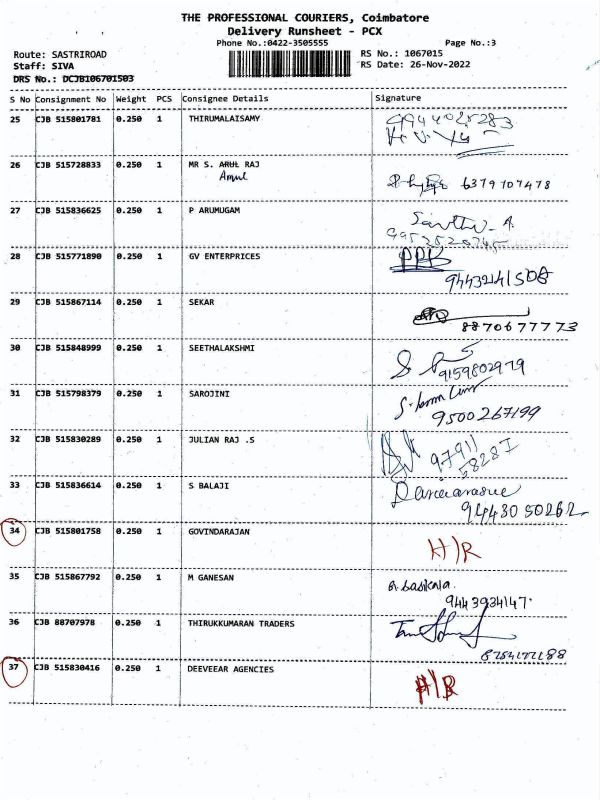 THE PROFESSIONAL COURIERS, Coimbatore
Delivery Runsheet - PCX
Phone No.:0422-3505555 Page No.:3
Route: SASTRIROAD RS No.: 1067015
Staff: SIVA RS Date: 26-Nov-2022
DRS No.: DCJB106701503
S No Consignment No Weight PCS Consignee Details Signature
25 CJB 515801781 0.250 1 THIRUMALAISAMY 9944025283
26 CJB 515728833 0.250 1 MR S. ARUL RAJ
Amul 6379107478
27 CJB 515836625 0.250 1 P ARUMUGAM
28 CJB 515771890 0.250 1 GV ENTERPRICES PPK
9443241508
29 CJB 515867114 0.250 1 SEKAR
8870677773
30 CJB 515848999 0.250 1 SEETHALAKSHMI
9159802979
31 CJB 515798379 0.250 1 SAROJINI
9500267199
32 CJB 515830289 0.250 1 JULIAN RAJ .S
33 CJB 515836614 0.250 1 S BALAJI
9443050262
34 CJB 515801758 0.250 1 GOVINDARAJAN H/R
35 CJB 515867792 0.250 1 M GANESAN
9443934147
36 CJB 88707978 0.250 1 THIRUKKUMARAN TRADERS
37 CJB 515830416 0.250 1 DEEVEEAR AGENCIES H/R